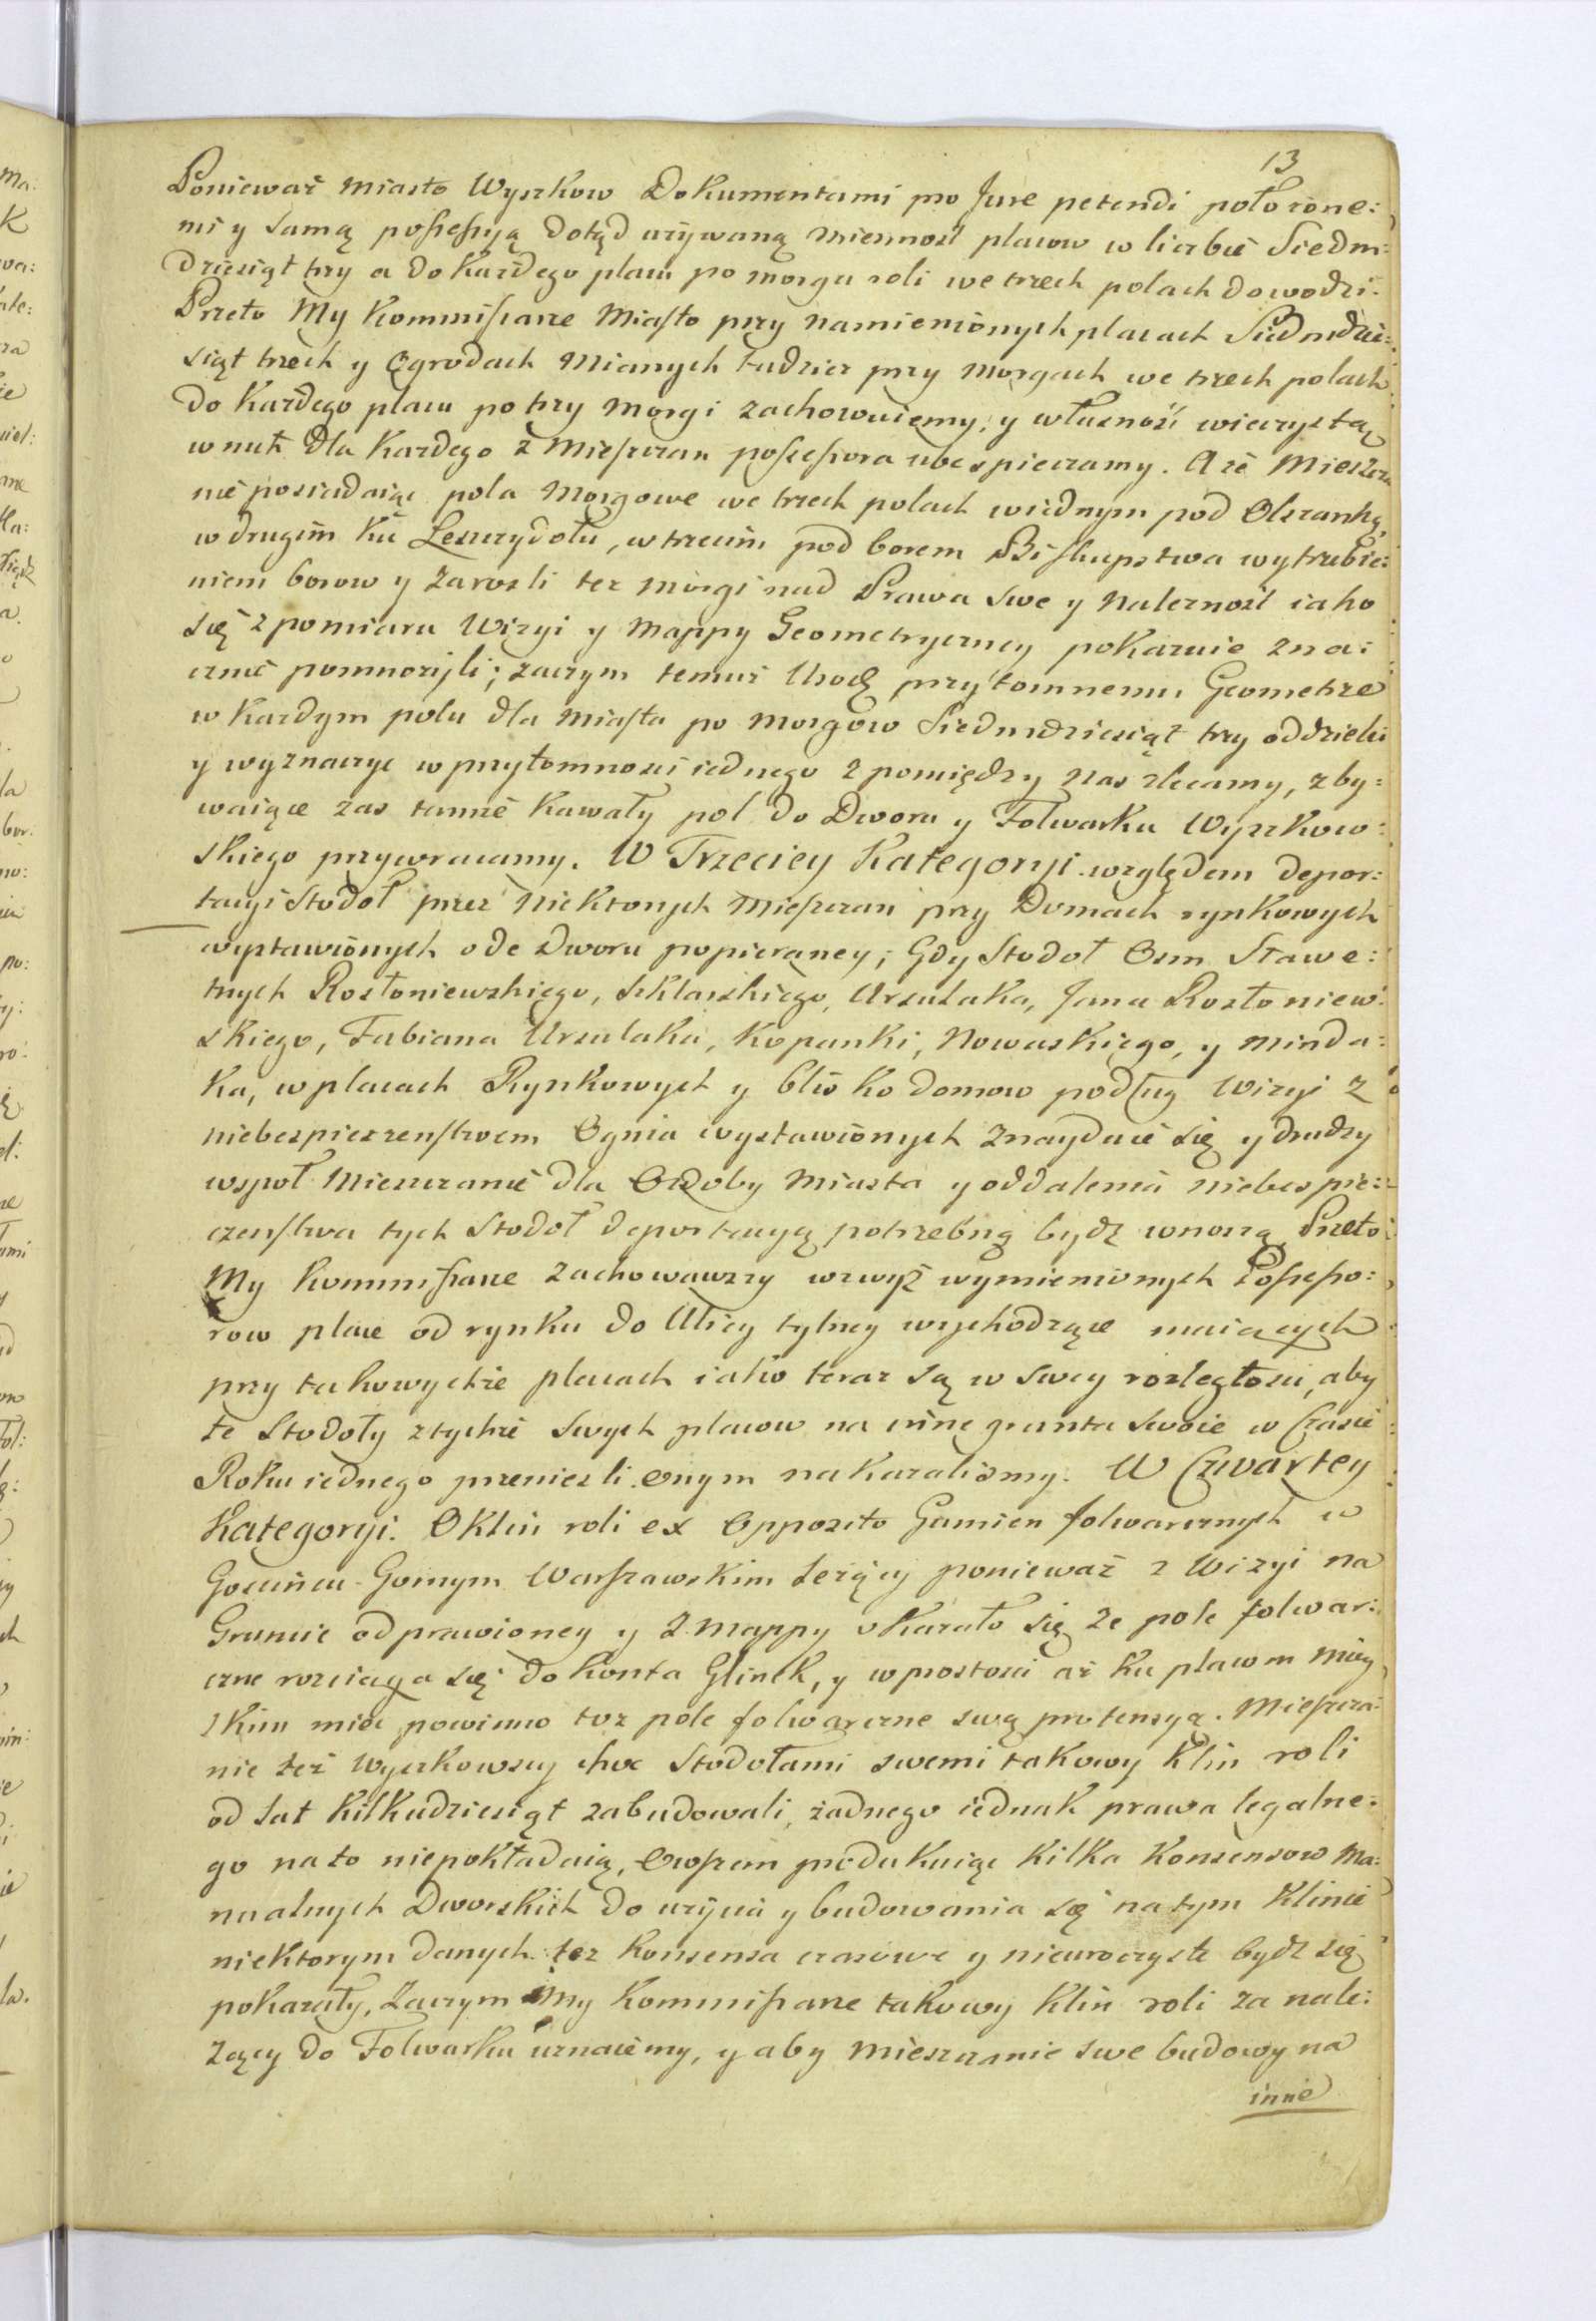 13
Poniewaź Miasto Wyszkow Dokumentami pro Jure petendi położone:
mi y samą possessyą dotąd używaną mienność placow w liczbie Siedm:
dziesiąt trzy a do każdego placu po morgu roli we trzech polach dowodzi.
Przeto My Kommissarze Miasto przy namienionych placach Siedmdzie:
siąt trzech y Ogrodach Mianych tudziesz przy Morgach we trzech polach
do każdego placu po trzy Morgi zachowuiemy, y własność wieczystą
w nich dla każdego z Mieszczan possessora ubespieczamy. A że Mieszcza
nie posiadaiąc pola Morgowe we trzech polach w iednym pod Olszanką,
w drugim ku Leszczydołu, w trzecim pod borem Biskupstwa wytrzebie:
niem borow y zarosli też morgi nad Prawa swe y Należność iako
się z pomiaru Wizyi y Mappy Geometryczney pokazuie zna:
cznie pomnożyli; zaczym temuż Urodz. przytomnemu Geometrze
w każdym polu dla Miasta po Morgow Siedmdziesiąt trzy oddzielić
y wyznaczyć w przytomności iednego z pomiędzy nas zlecamy, zby:
waiące zas tamże kawały pol do Dworu y Folwarku Wyszkow:
skiego przywracamy. W Trzeciey Kategoryi względem depor:
tacyi Stodoł przez Niektorych Mieszczan przy Domach rynkowych
wystawionych ode Dworu popieraney; Gdy Stodoł Osm Sławe:
tnych Rosłoniewskiego, Szklarskiego, Urszulaka, Jana Rosłoniew:
skiego, Fabiana Urszulaka, Kopanki, Nowaskiego, y Minda:
ka, w placach Rynkowych y blisko domow podług Wizyi z
niebezpieczenstwem Ognia wystawionych znayduie się y drudzy
wspoł Mieszczanie dla Ozdoby Miasta y oddalenia niebespie:
czenstwa tych Stodoł deportacyą potrzebną bydź wnoszą, Przeto
My Kommissarze zachowawszy wzwyż wymienionych Possesso:
row place od rynku do Ulicy tylney wychodzące maiących
przy takowychże placach iako teraz są w swey rozległosci, aby
te Stodoły z tychże swych placow na inne grunta swoie w Czasie
Roku iednego przenieśli onym nakazaliśmy. W Czwartey
Kategoryi. O Klin roli ex Opposito Gumien folwarcznych w
Goscińcu Gornym Warszawskim leżący ponieważ z Wizyi na
Gruncie odprawioney y z Mappy okazało się że pole folwar:
czne rozciąga się do Konta Glinek, y w prostosci aż ku placom Miey
skim mieć powinno toż pole folwarczne swą pretensyą. Mieszcza:
nie też Wyszkowscy choc Stodołami swemi takowy Klin roli
od lat kilkudziesiąt zabudowali, żadnego iednak prawa legalne:
go na to niepokładaią, Owszem produkuiąc kilka Konsensow Ma:
nualnych Dworskich do użycia y budowania się na tym Klinie
niektorym danych też konsensa czasowe y niewieczyste bydź się
pokazały, Zaczym My Kommissarze takowy klin roli za nale:
żący do Folwarku uznaiemy, y aby Mieszczanie swe budowy na
inne